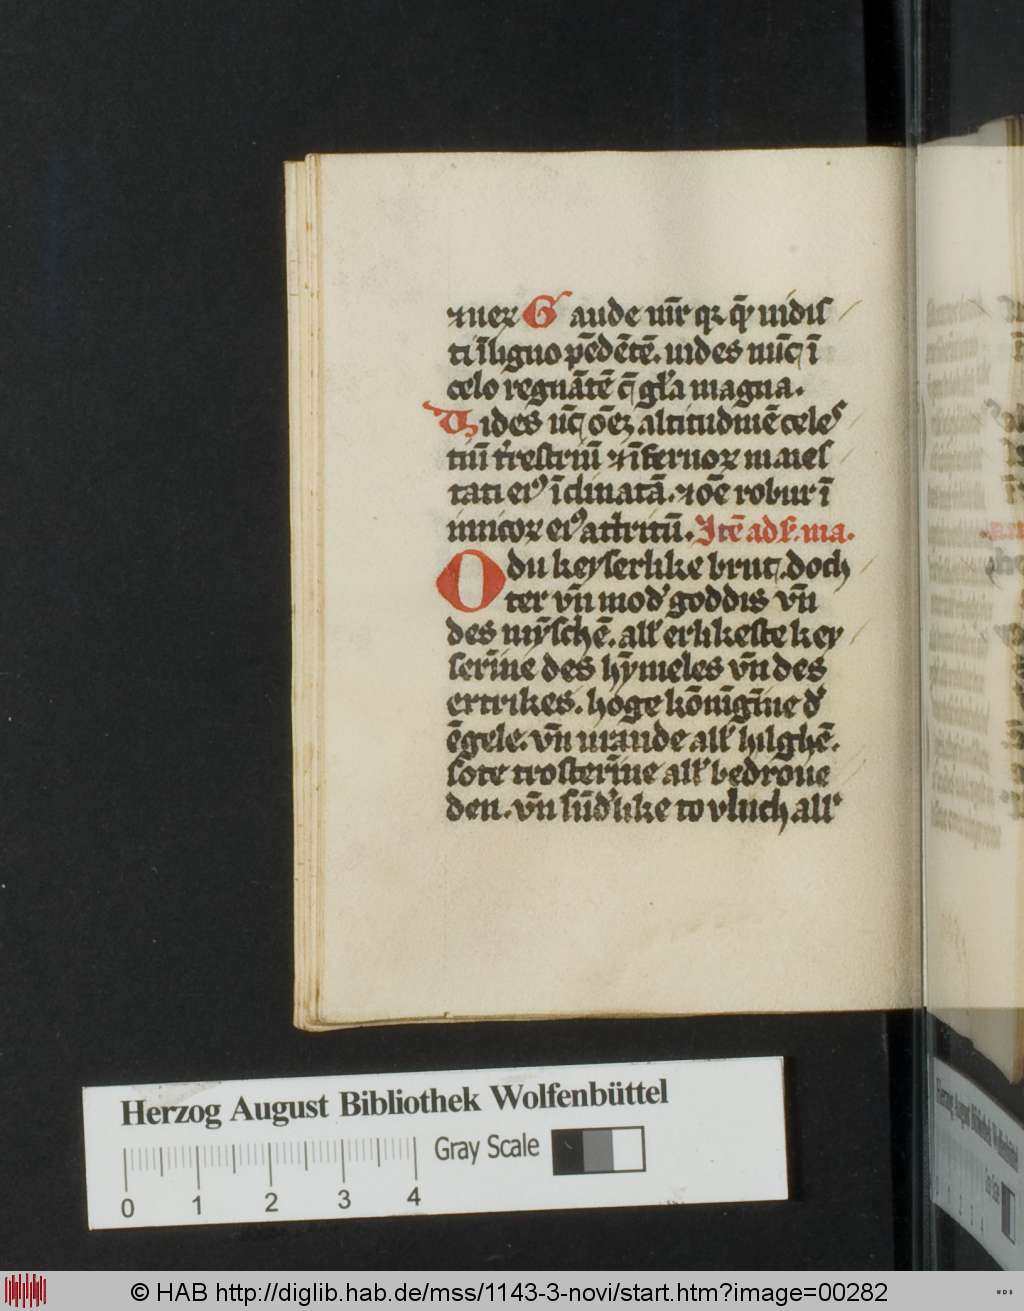 ⁊ uerꝫ Gaude mr̄ qꝛ quē vidis
ti ī ligno pēdētē. vides nūc ī
celo regnātē cū gl̄a magna.
Vides nūc oēꝫ altitudinē celes
tiū t̄restriū ⁊ īfernoꝝ maies
tati eiꝰ īclinatā. ⁊ oē robur ī
īmicoꝝ eiꝰ att̄ritū. Itē ad s. ma.
O du keyserlike brut. doch
ter vn̄ mod' goddis vn̄
des mȳschē. all' erlikeste key
serīne des hȳmeles vn̄ des
ertrikes. hoge kōnīgīne d'
ēgele. vn̄ urande all' hilghē.
sote trosterīne all' bedroue
den. vn̄ sūd'like to vlucht all'
Herzog August Bibliothek Wolfenbüttel
Gray Scale
0 1 2 3 4
© HAB http://diglib.hab.de/mss/1143-3-novi/start.htm?image=00282